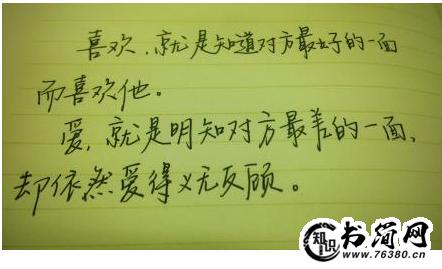 喜欢，就是知道对方最好的一面
而喜欢他。
爱，就是明知对方最差的一面，
却依然爱得义无反顾。
知识
书简网
www.76380.cn